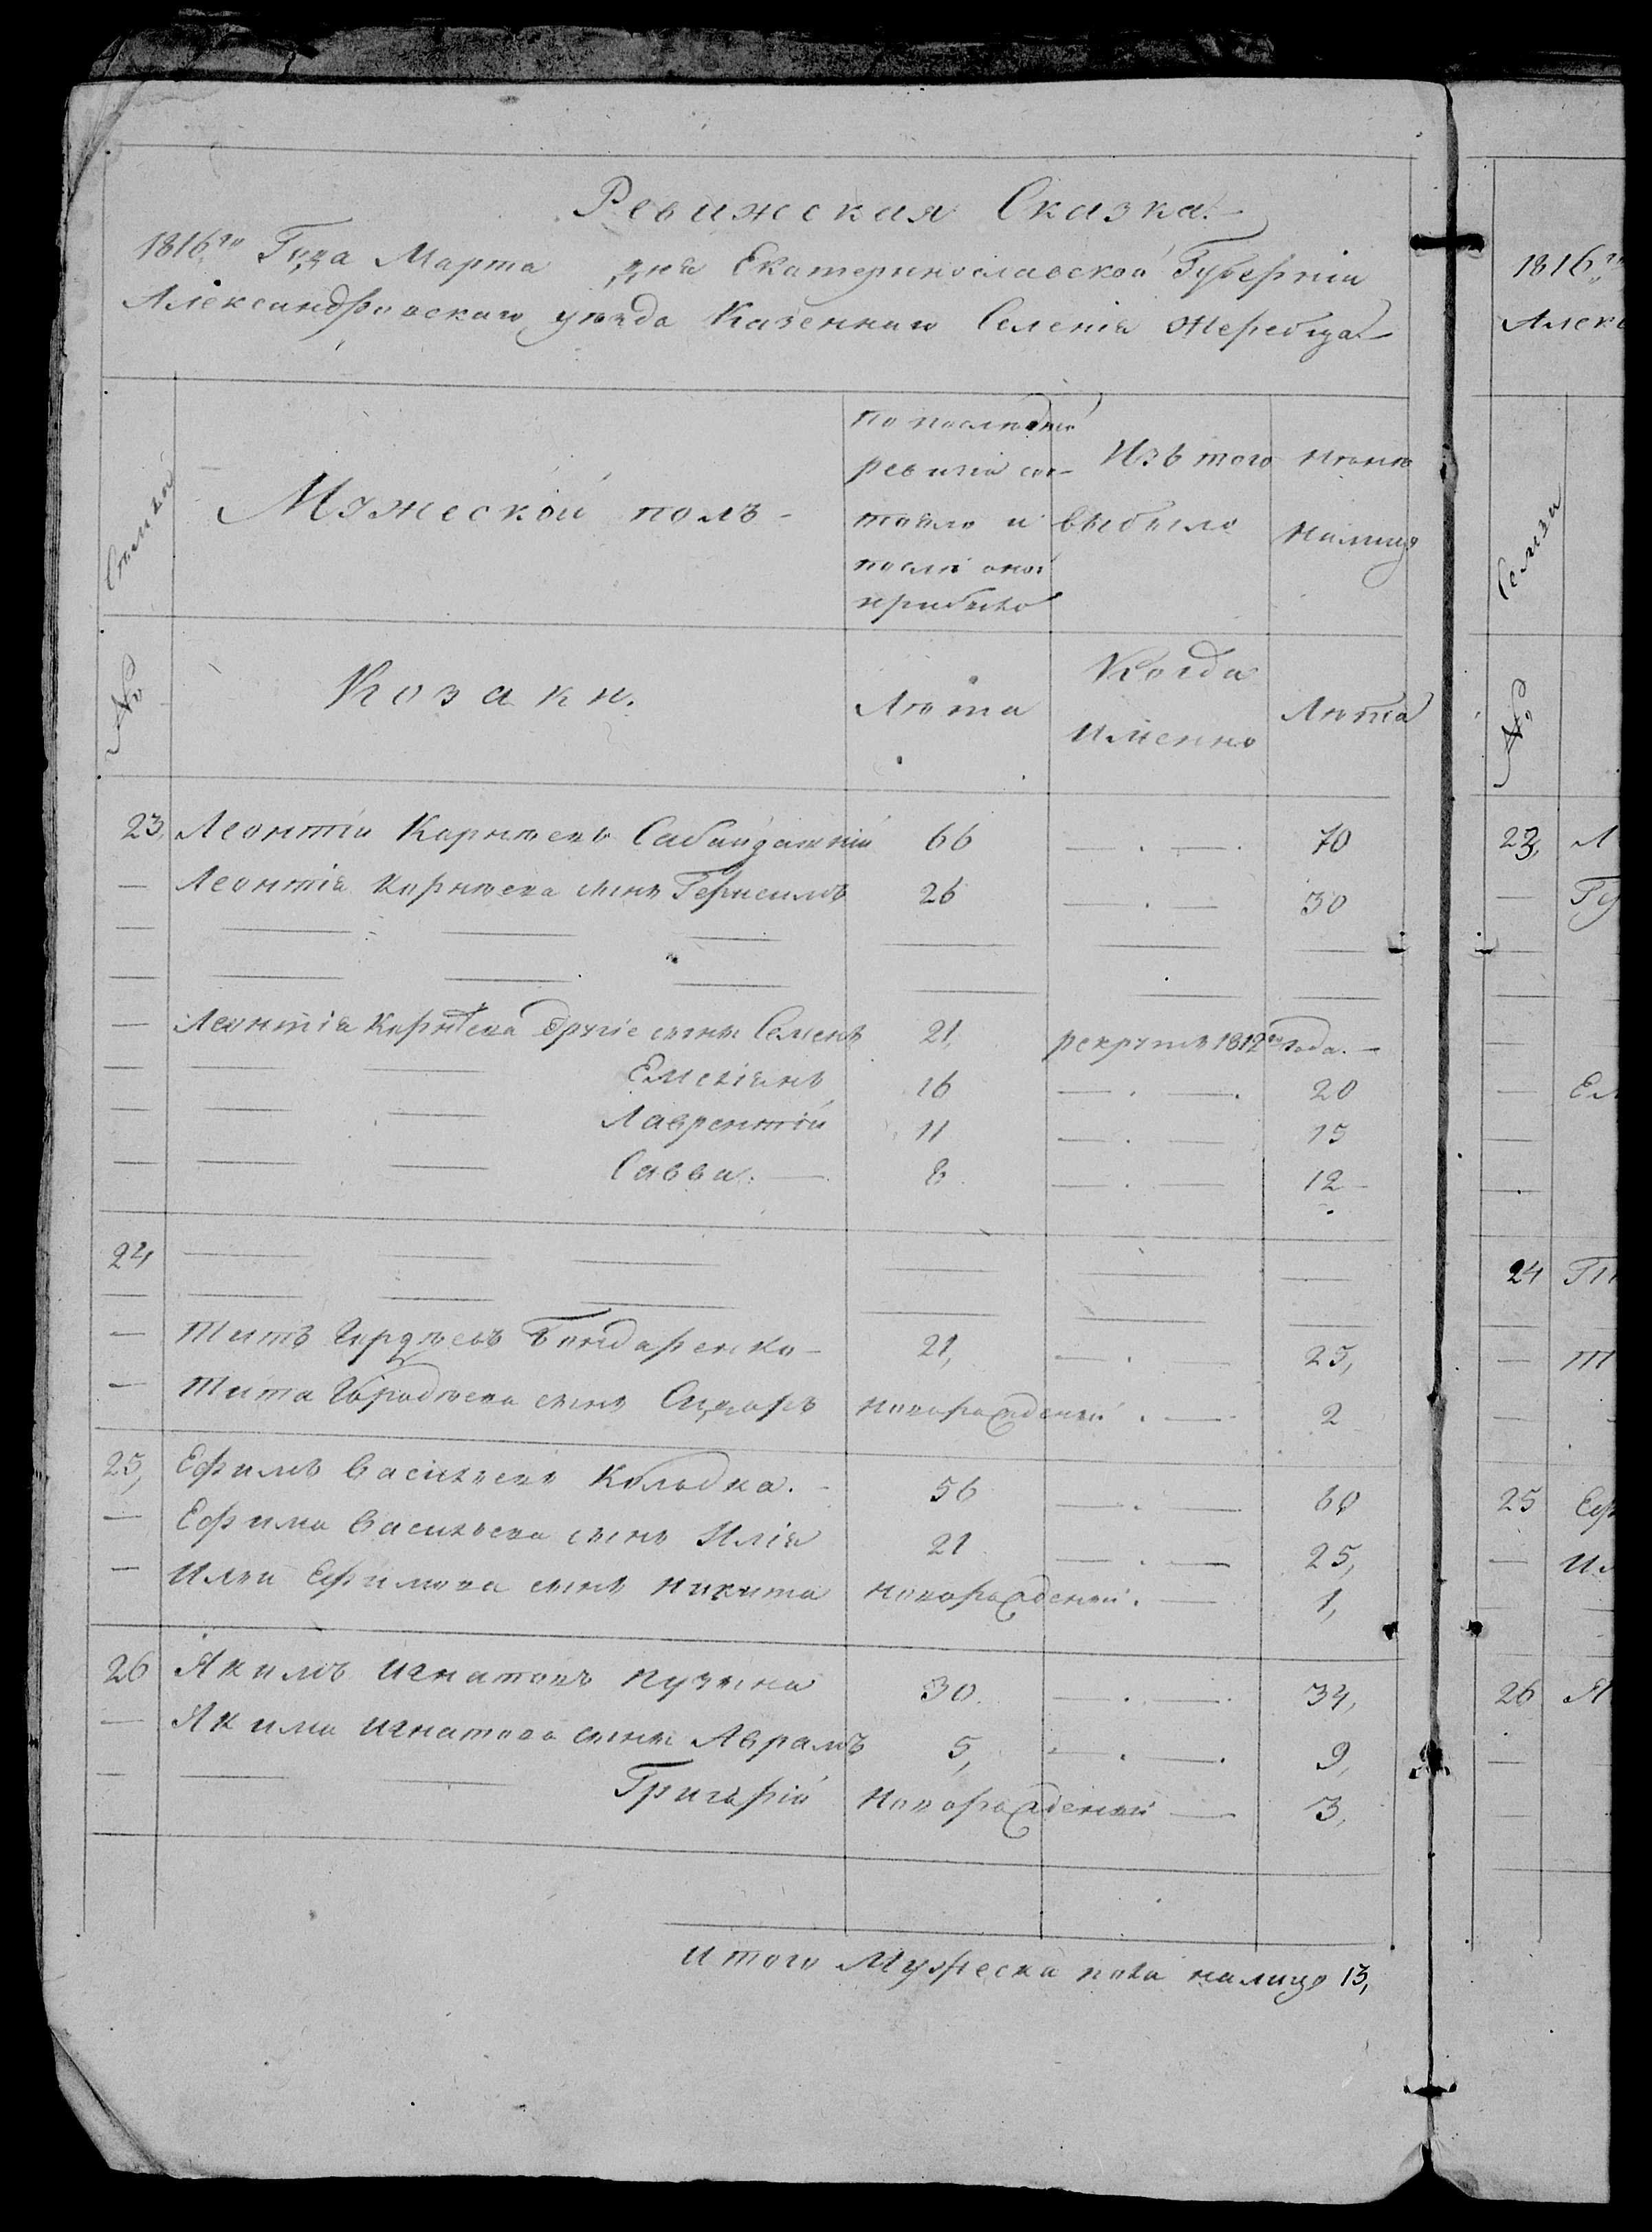 Ревижская Сказка.
1816го Года Марта дня Екатеринославской Губерніи
Александровскаго уѣзда Казеннаго Селенія Жеребца
Семьи
Мужеской полъ
по послѣдней
ревизіи сос-
тояло и
послѣ оной
прибыло
Изъ того
выбыло
нынѣ
на лицо
№
Козаки.
Лѣта
Когда
именно
Лѣта
23, Леонтій Карнѣевъ 66 — . — . 70
— Леонтія Корнѣева сынъ Герасимъ 26 — . — 30
— — — — — — —
— — — — — — —
— Леонтія Корнѣева другіе сыны Семенъ 21, рекрутъ 1812го года. —
— — — Емеліянъ 16 — . — . 20
— — — Лаврентій 11 — . — 15
— — — Савва. — 8 — . — 12
24, — — — — — —
— — — — — — —
— Титъ Гордѣевъ Бондаренко — 21, — . — 25,
— Тита Гордѣева сынъ Сидоръ новорожденный . — 2
25, Ефимъ Васильевъ 56 — . — 60
— Ефима Васильева сынъ Илія 21 — . — 25,
— Ильи Ефимова сынъ Никита новорожденный . — 1,
26 Якимъ Игнатовъ Пузына 30. — . — . 34,
— Якима Игнатова сыны Аврамъ 5, — . — . 9,
— — — Григорій новорожденный — 3,
итого Мужеска пола налицо 13,
1816го
Алекс
Семьи
№
23, Л
— Гу
—
—
—
— Ем
—
—
24
—
— Ти
—
25 Еф
— Ил
—
26 Я
—